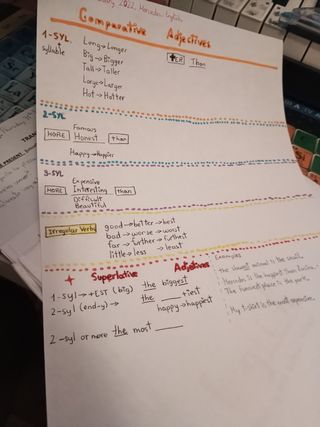 2022, Hércules, English
Comparative Adjectives
1-SYL.
syllable
Long→Longer
Big→Bigger
Tall→Taller
Large→Larger
Hot→Hotter
+ER Than
2-SYL
Famous
MORE Honest than
Happy→Happier
3-SYL
Expensive
MORE Interesting than
Difficult
Beautiful
Irregular Verbs
good→better→best
bad→worse→worst
far→further→furthest
little→less → least
+ Superlative Adjetives
1-syl→+EST (big) the biggest
2-syl (end-y)→ the ___tiest
happy→happiest
2-syl or more the most ___
Examples
the slowest animal is the snail.
The funniest place is the park.
My t-shirt is the most expensive.
PRESENT